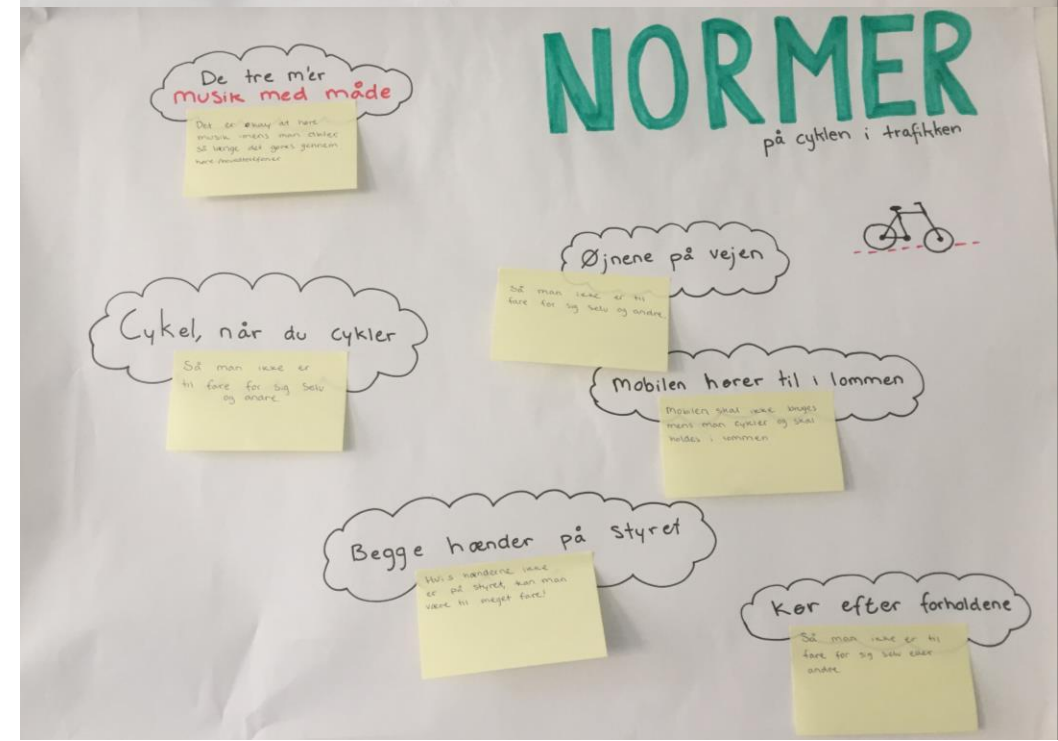 NORMER
på cyklen i trafikken
De tre m'er
musik med måde
Det er okay at høre
musik mens man cykler
så længe det gøres gennem
Øjnene på vejen
Så man ikke er til
fare for sig selv og andre
Cykel, når du cykler
Så man ikke er
til fare for sig selv
og andre
Mobilen hører til i lommen
Mobilen skal ikke bruges
mens man cykler og skal
holdes i lommen
Begge hænder på styret
Hvis hænderne ikke
er på styret, kan man
være til meget fare!
Kør efter forholdene
Så man ikke er til
fare for sig selv eller
andre